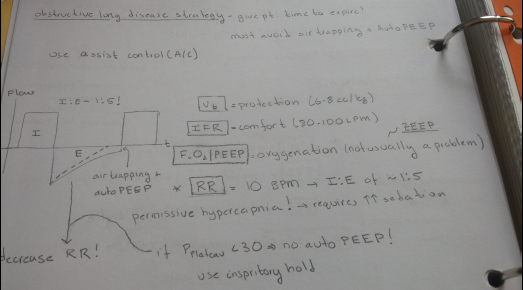 obstructive lung disease strategy - give pt. time to expire!
must avoid air trapping + autoPEEP
use assist control (A/C)
Flow
I:E - 1:5!
I
E
t
air trapping +
auto PEEP
VT = protection (6-8 cc/kg)
IFR - comfort (80-100 LPM)
~ ZEEP
FiO2/PEEP - oxygenation (not usually a problem)
* RR = 10 BPM → I:E of ~1:5
permissive hypercapnia! → requires ↑↑ sedation
decrease RR!
if Pplateau <30 ⇒ no auto PEEP!
use inspritory hold